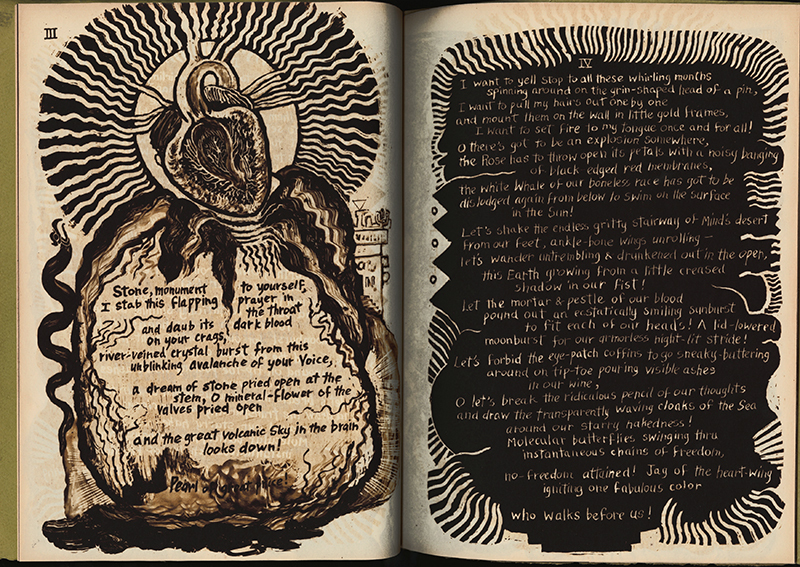 III
Stone, monument to yourself,
I stab this flapping prayer in
the throat
and daub its dark blood
on your crags,
river-veined crystal burst from this
unblinking avalanche of your Voice,
a dream of stone pried open at the
stem, O mineral-flower of the
valves pried open
and the great volcanic Sky in the brain
looks down!
Pearl of great price!
IV
I want to yell stop to all these whirling months
spinning around on the grin-shaped head of a pin,
I want to pull my hairs out one by one
and mount them on the wall in little gold frames,
I want to set fire to my tongue once and for all!
O there's got to be an explosion somewhere,
the Rose has to throw open its petals with a noisy banging
of black edged red membranes,
the white Whale of our boneless race has got to be
dislodged again from below to swim on the surface
in the Sun!
Let's shake the endless gritty stairway of Mind's desert
from our feet, ankle-bone wings unrolling —
let's wander untrembling & drunkened out in the open,
this Earth growing from a little creased
shadow in our fist!
Let the mortar & pestle of our blood
pound out an ecstatically smiling sunburst
to fit each of our heads! A lid-lowered
moonburst for our armorless night-lit stride!
Let's forbid the eye-patch coffins to go sneaky-buttering
around on tip-toe pouring visible ashes
in our wine,
O let's break the ridiculous pencil of our thoughts
and draw the transparently waving cloaks of the Sea
around our starry nakedness!
Molecular butterflies swinging thru
instantaneous chains of freedom,
no-freedom attained! Jay of the heart-wing
igniting one fabulous color
who walks before us!